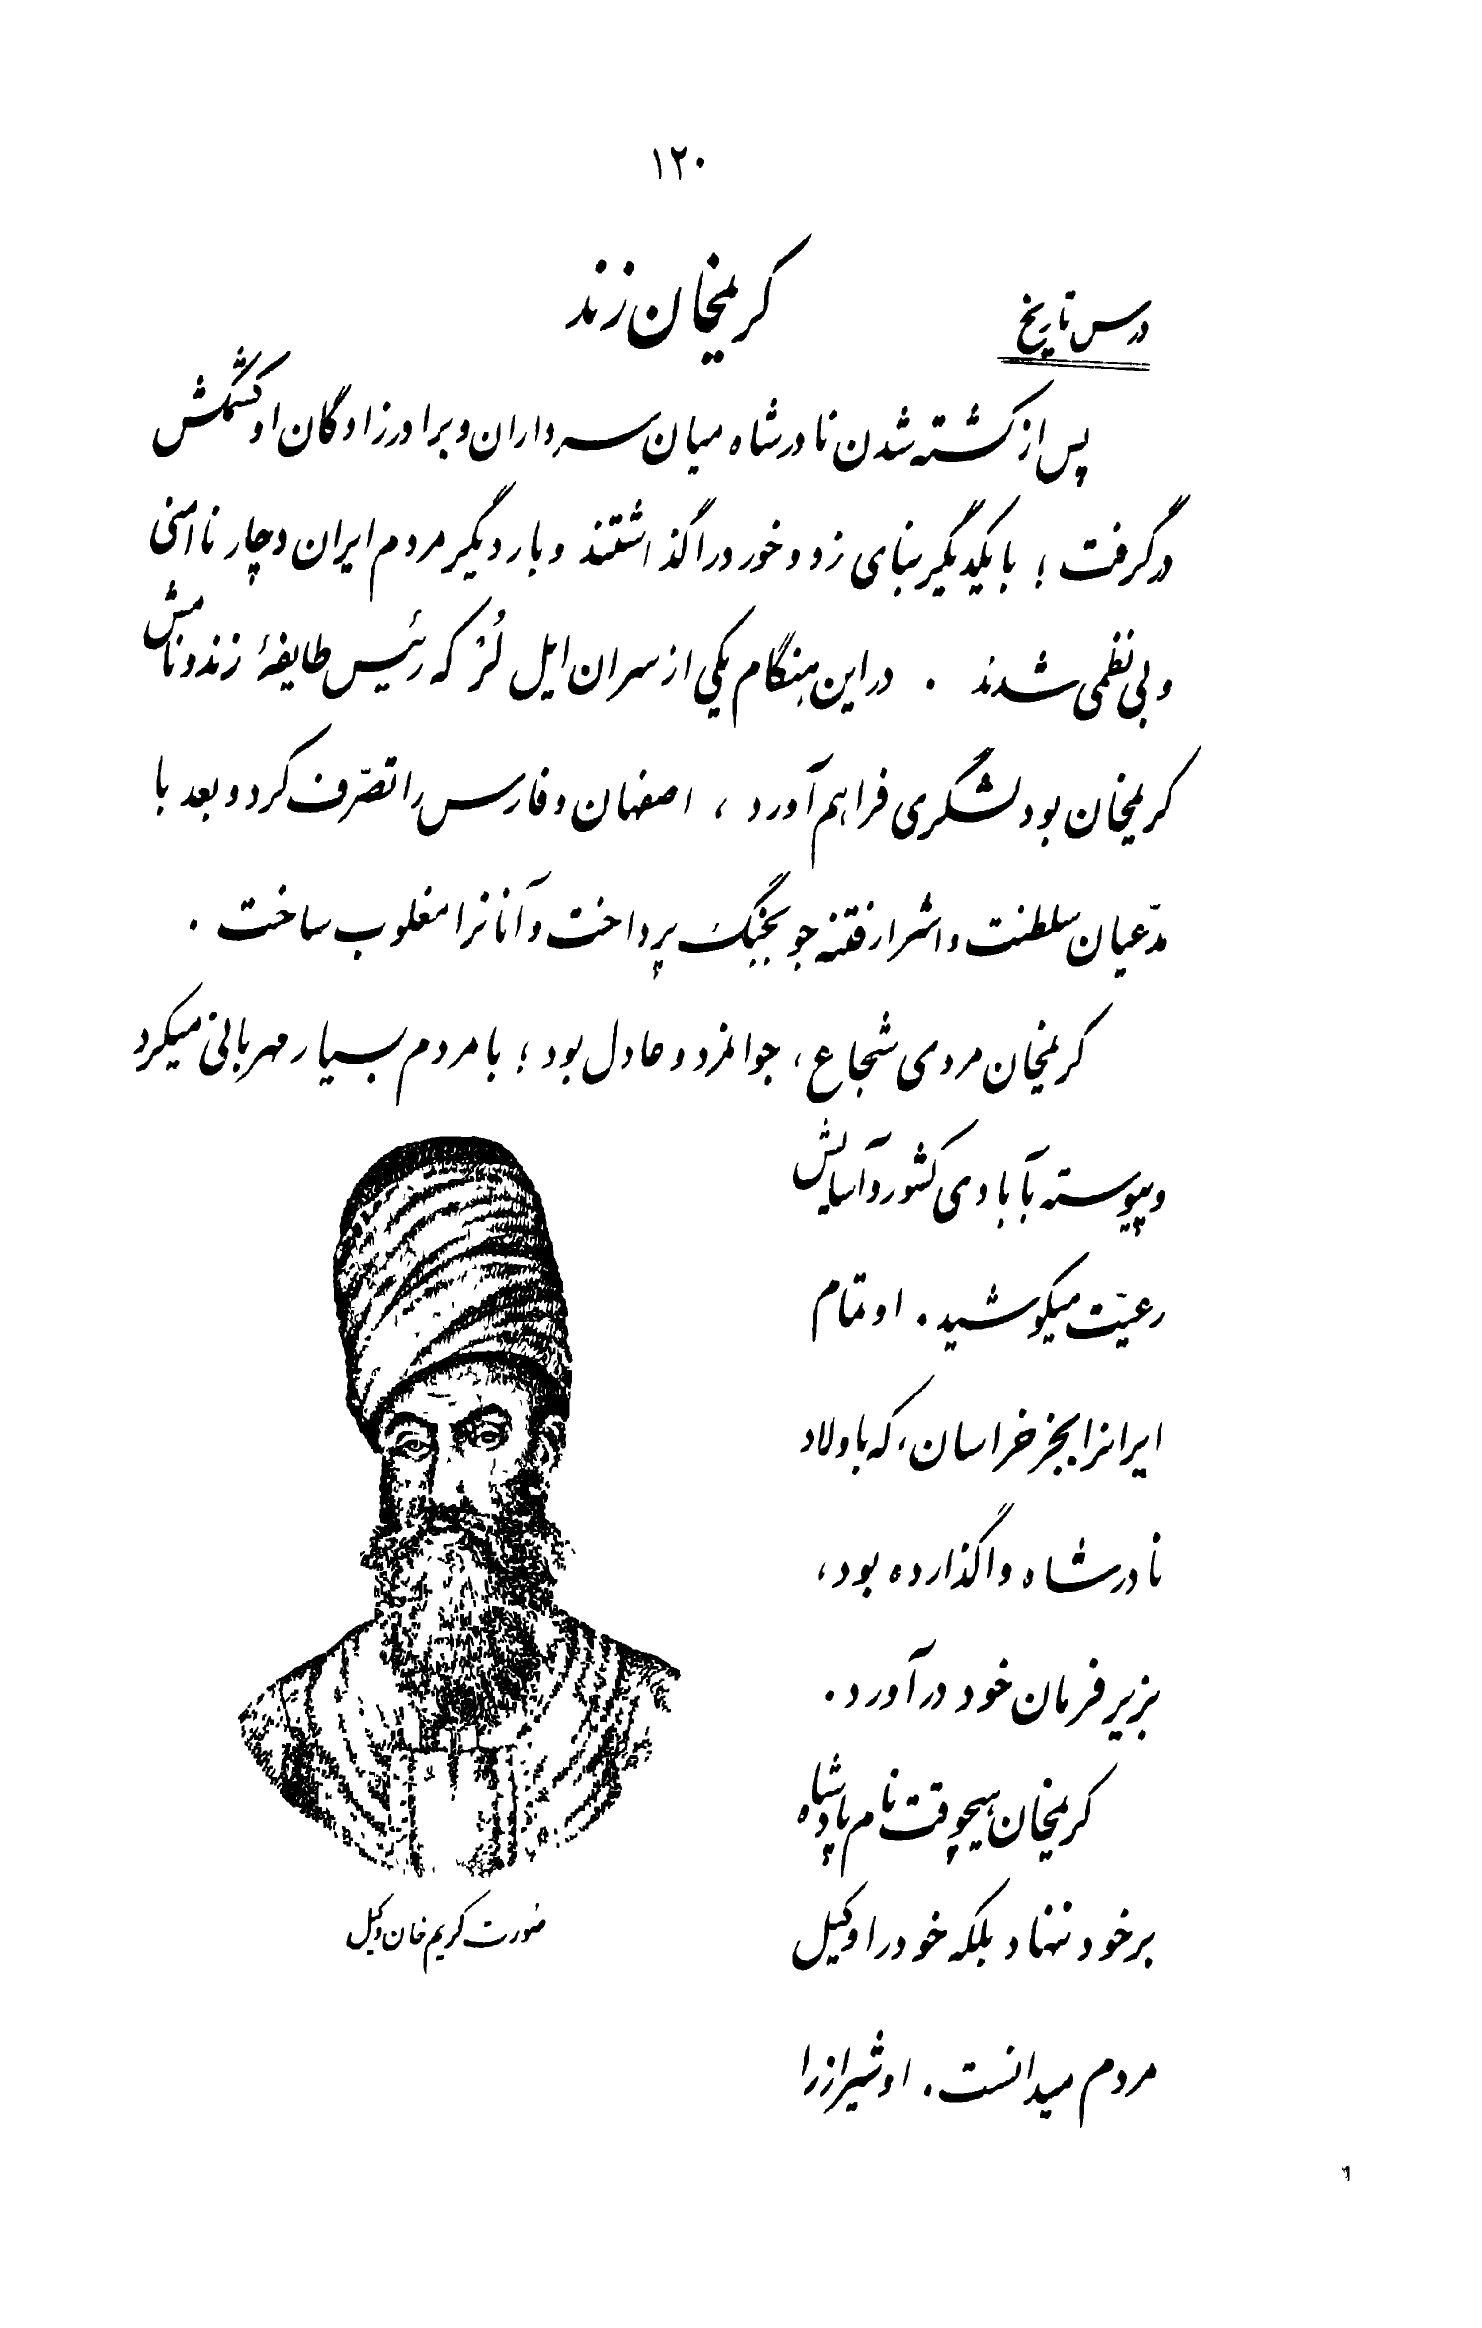 ۱۲۰
درس تاریخ
کریمخان زند
پس از کشته شدن نادرشاه میان سرداران و برادرزادگان او کشمکش
درگرفت ؛ با یکدیگر بنای زد و خورد را گذاشتند و بار دیگر مردم ایران دچار ناامنی
و بی نظمی شدند . در این هنگام یکی از سران ایل لُر که رئیس طایفهٔ زند و نامش
کریمخان بود لشگری فراهم آورد ، اصفهان و فارس را تصرّف کرد و بعد با
مدّعیان سلطنت و اشرار فتنه جو بجنگ پرداخت و آنانرا مغلوب ساخت .
کریمخان مردی شجاع ، جوانمرد و عادل بود ؛ با مردم بسیار مهربانی میکرد
و پیوسته بآبادی کشور و آسایش
رعیّت میکوشید . او تمام
ایرانرا بجز خراسان ، که باولاد
نادرشاه واگذارده بود ،
بزیر فرمان خود درآورد .
کریمخان هیچوقت نام پادشاه
بر خود ننهاد بلکه خود را وکیل
مردم میدانست . او شیراز را
صورت کریم خان وکیل